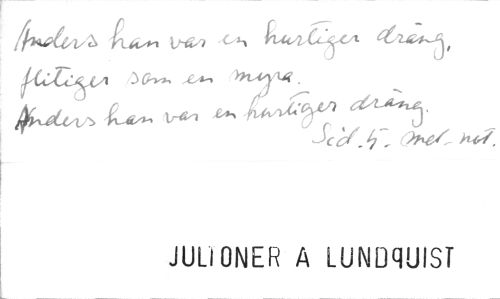 Anders han var en hurtiger dräng,
flitiger som en myra.
Anders han var en hurtiger dräng.
Sid. 5. mel-not.
JULIONER A LUNDQUIST